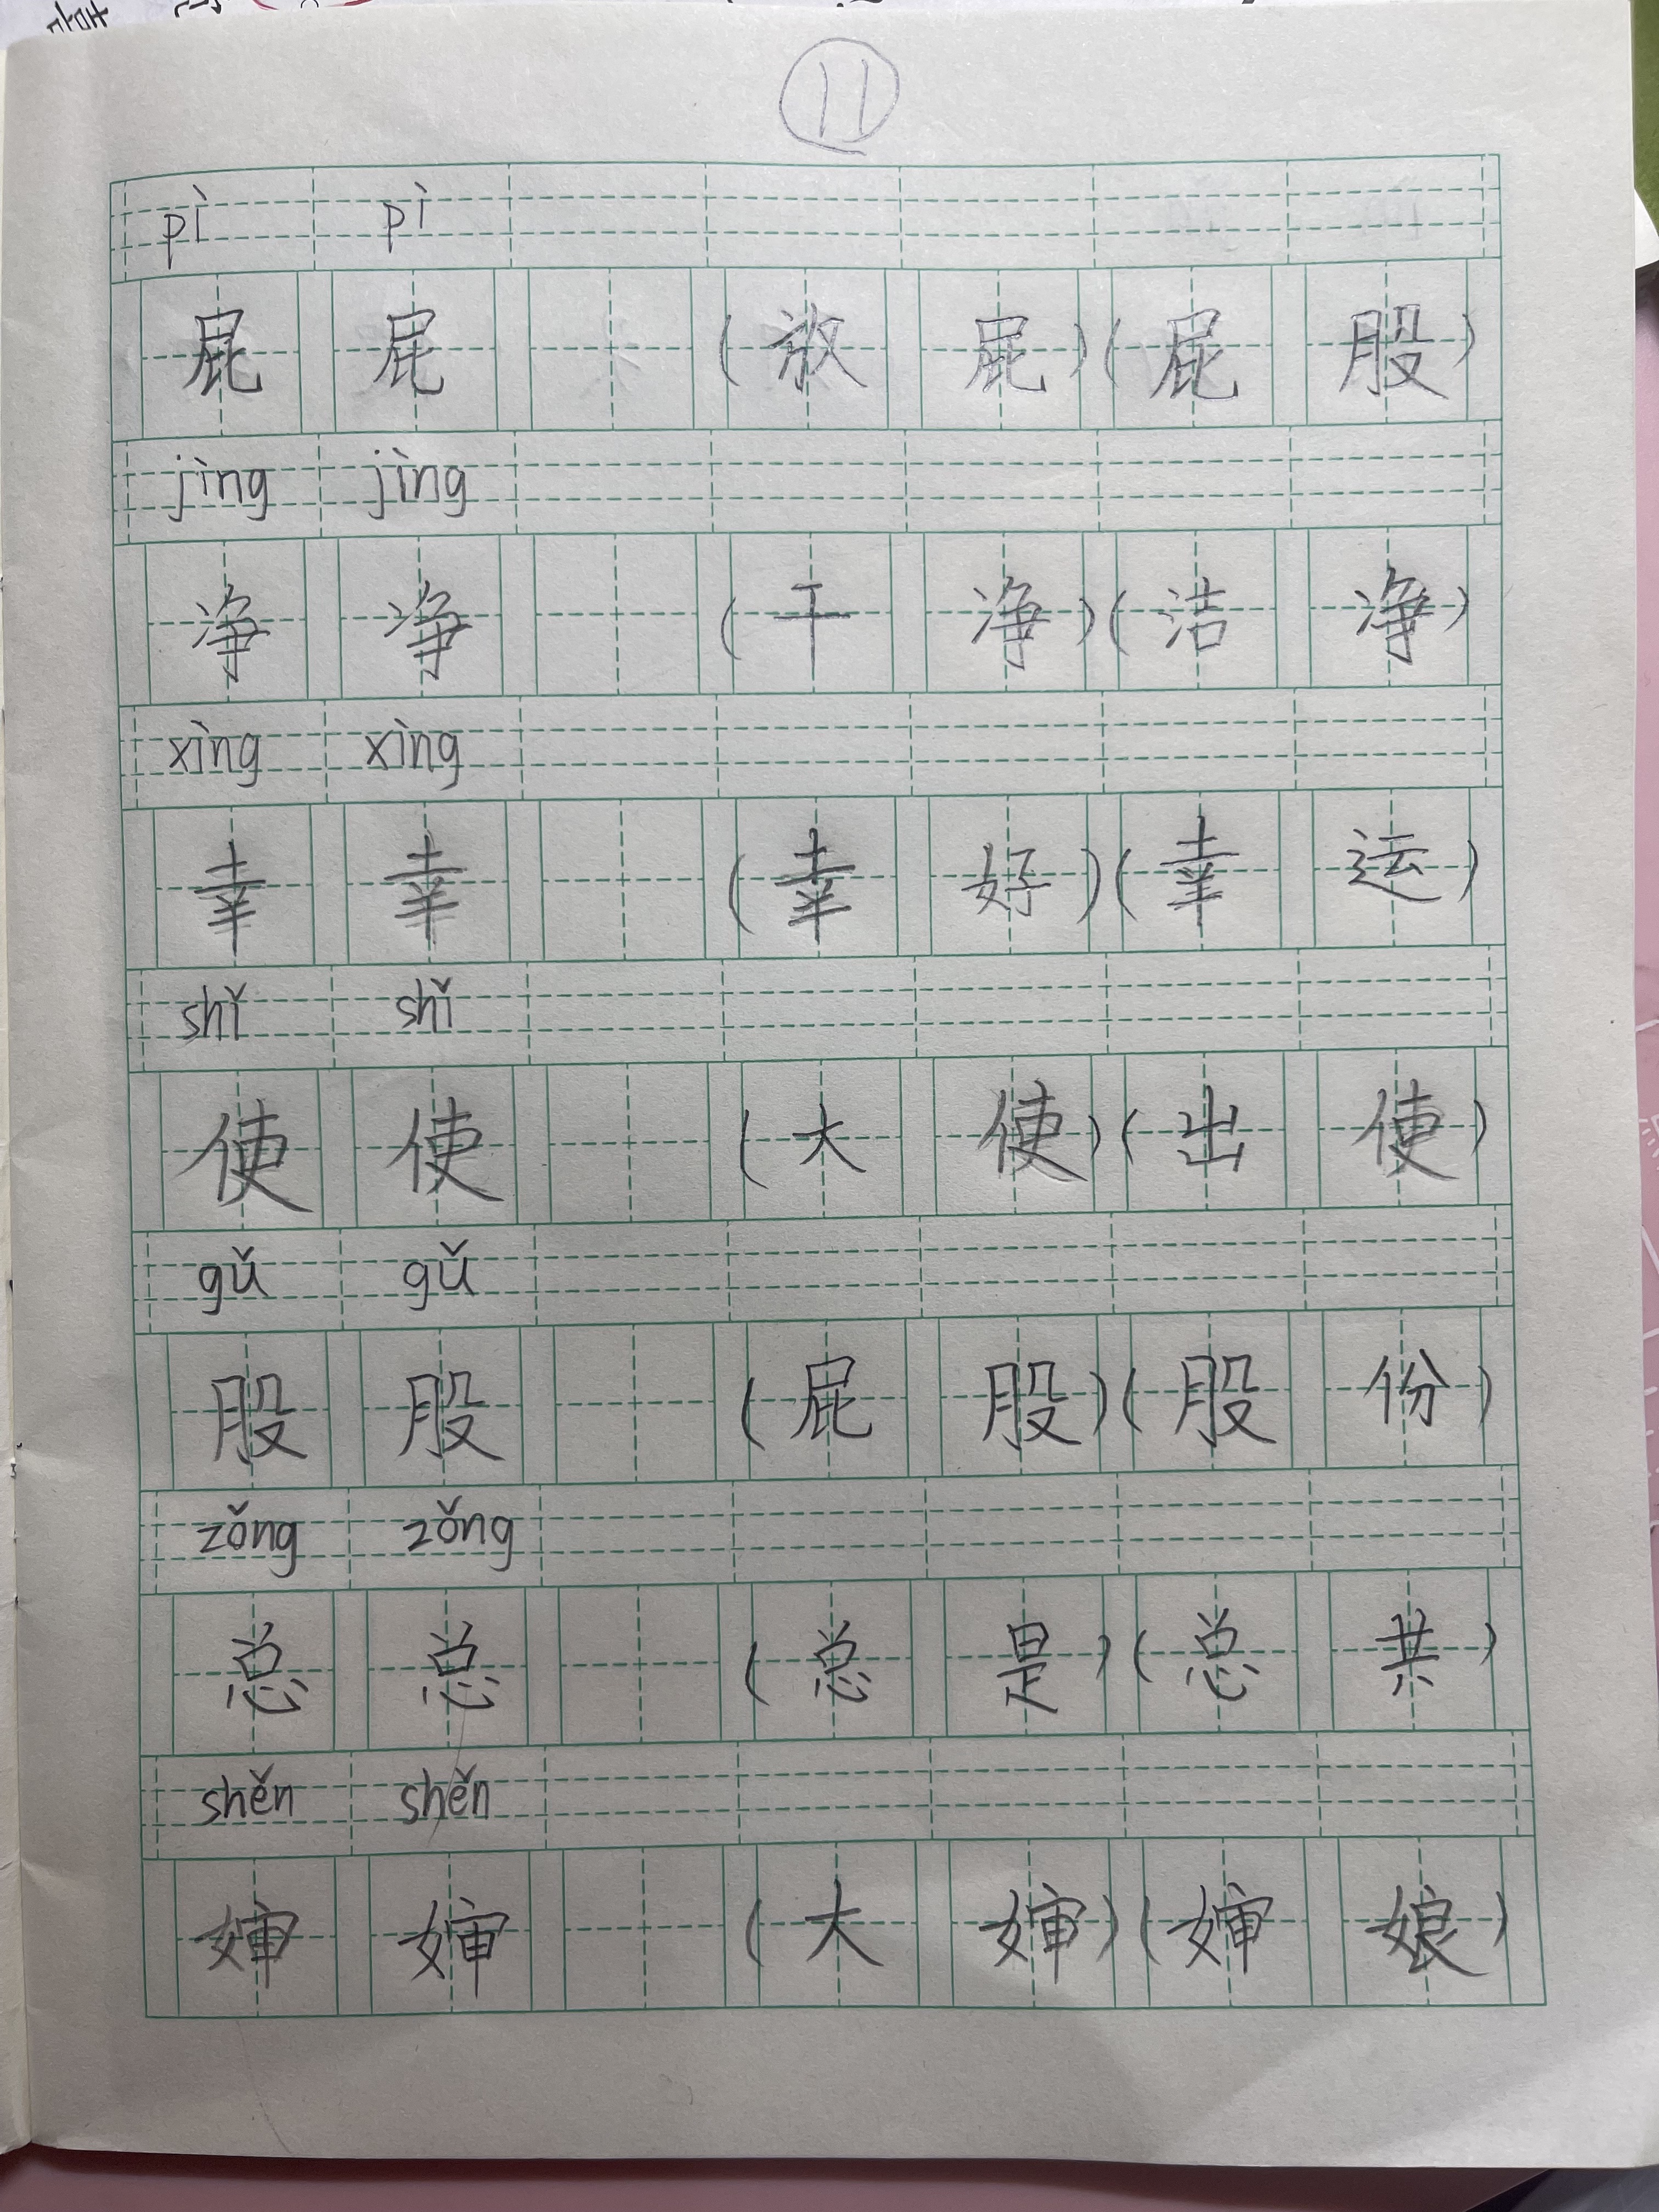 11
pì pì
屁 屁 (放 屁)(屁 股)
jìng jìng
净 净 (干 净)(洁 净)
xìng xìng
幸 幸 (幸 好)(幸 运)
shǐ shǐ
使 使 (大 使)(出 使)
gǔ gǔ
股 股 (屁 股)(股 份)
zǒng zǒng
总 总 (总 是)(总 共)
shěn shěn
婶 婶 (大 婶)(婶 娘)